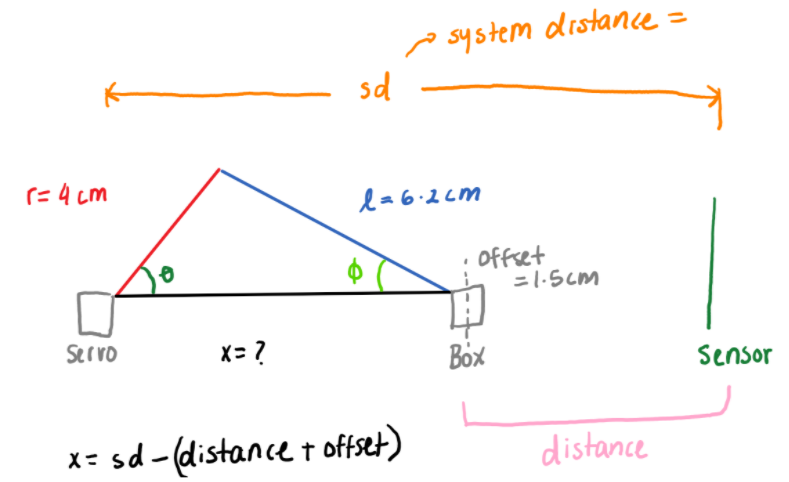 system distance =
sd
r= 4 cm
l = 6.2 cm
θ
ϕ
offset
= 1.5cm
servo
x= ?
Box
sensor
distance
x= sd - (distance + offset)